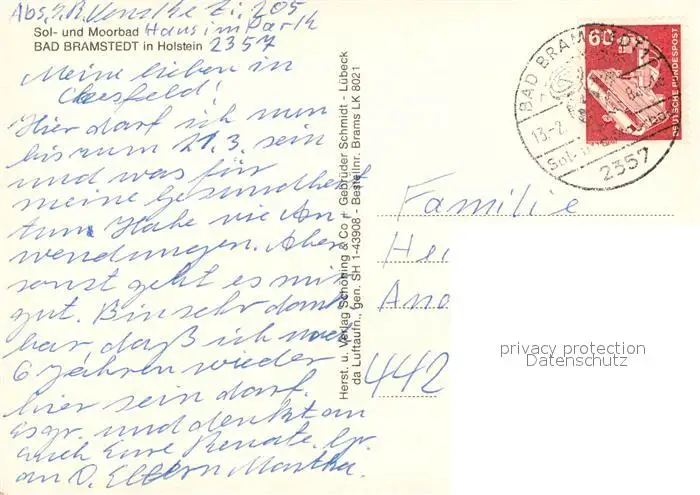 Abs. z. B. Zi. 205
Haus im Park
Sol- und Moorbad
BAD BRAMSTEDT in Holstein 2357
Meine lieben in
Coesfeld!
Hier darf ich nun
bis zum 21.3. sein
und was für
meine Gesundheit
tun. Habe vie An
wendungen. Aber
sonst geht es mir
gut. Bin sehr dank
bar, daß ich nach
6 Jahren wieder
hier sein darf.
Es gr. und denkt an
auch Eure Renate. Gr.
an D. Eltern Martha.
Herst. u. Verlag Schöning & Co + Gebrüder Schmidt - Lübeck
da Luftaufn., gen. SH 1-43908 - Bestellnr. Brams LK 8021
60
DEUTSCHE BUNDESPOST
BAD BRAMSTEDT
13.-2.
2357
Familie
Hei
And
442
privacy protection
Datenschutz